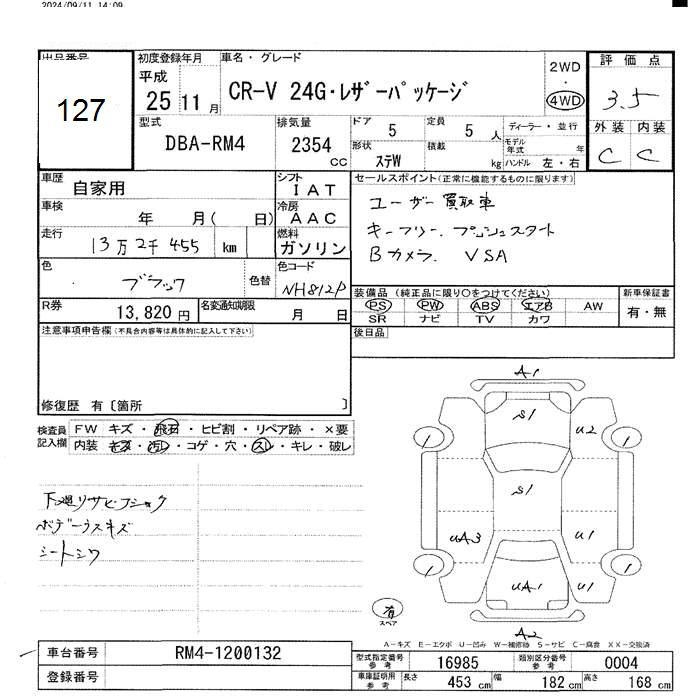 2024/09/11 14:09
出品番号
127
初度登録年月
平成
25 11 月
車名・グレード
CR-V 24G・レザーパッケージ
2WD
・
4WD
評価点
3.5
外装 内装
C C
型式
DBA-RM4
排気量
2354
CC
ドア
5
定員
5 人
形状
ステW
積載
kg
ディーラー・並行
モデル年式 年
ハンドル 左・右
車歴
自家用
シフト
IAT
車検
年 月( 日)
冷房
AAC
走行
13万2千455 km
燃料
ガソリン
色
ブラック
色替
色コード
NH812P
R券
13,820 円
名変通知期限
月 日
セールスポイント(正常に機能するものに限ります)
ユーザー買取車
キーフリー プッシュスタート
Bカメラ VSA
装備品(純正品に限り○をつけてください)
PS PW ABS エアB AW
SR ナビ TV カワ
新車保証書
有・無
後日品
注意事項申告欄(不具合内容等は具体的に記入して下さい)
修復歴 有〔箇所 〕
検査員記入欄
FW キズ・飛石・ヒビ割・リペア跡・×要
内装 キズ・汚レ・コゲ・穴・スレ・キレ・破レ
下廻リサビ・フショク
ボデーウスキズ
シートシワ
A1
S1
U2
1 1
S1
UA3
U1
1 1
UA1
U1
A2
有
スペア
A−キズ E−エクボ U−凹み W−補修跡 S−サビ C−腐食 XX−交換済
車台番号
RM4-1200132
登録番号
型式指定番号
参考
16985
類別区分番号
参考
0004
車庫証明用
参考
長さ 453 cm 幅 182 cm 高さ 168 cm